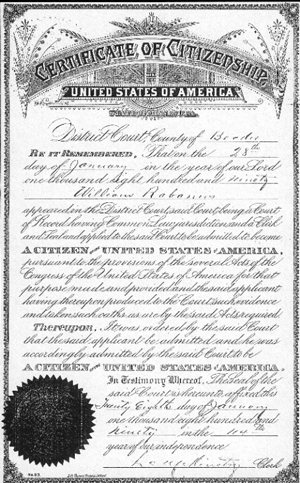 CERTIFICATE OF CITIZENSHIP
UNITED STATES OF AMERICA.
District Court County of
BE IT REMEMBERED, That on the 28th
day of January in the year of our Lord
one thousand eight hundred and ninety
William
appeared in the District Court, said Court being a Court
of Record, having Common Law jurisdiction and a Clerk
and Seal and applied to the said Court to be admitted to become
A CITIZEN OF THE UNITED STATES OF AMERICA,
pursuant to the provisions of the several Acts of the
Congress of the United States of America for that
purpose made and provided and the said applicant
having thereupon produced to the Court such evidence
and taken such oaths as are by the said Acts required
Thereupon, It was ordered by the said Court
that the said applicant be admitted and he was
accordingly admitted by the said Court to be
A CITIZEN OF THE UNITED STATES OF AMERICA.
In Testimony Whereof, The seal of the
said Court is hereunto affixed this
Eighth day of January
one thousand eight hundred
ninety in the 14th
year of our independence
Clerk